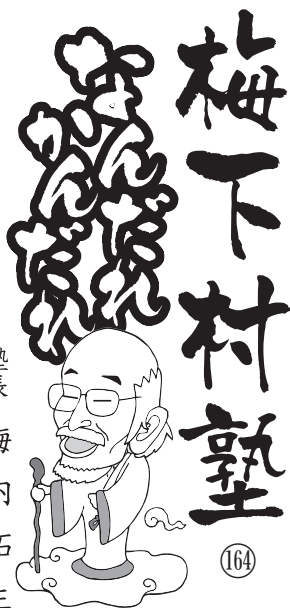 梅下村塾
⑯④
なんだれ
かんだれ
塾長